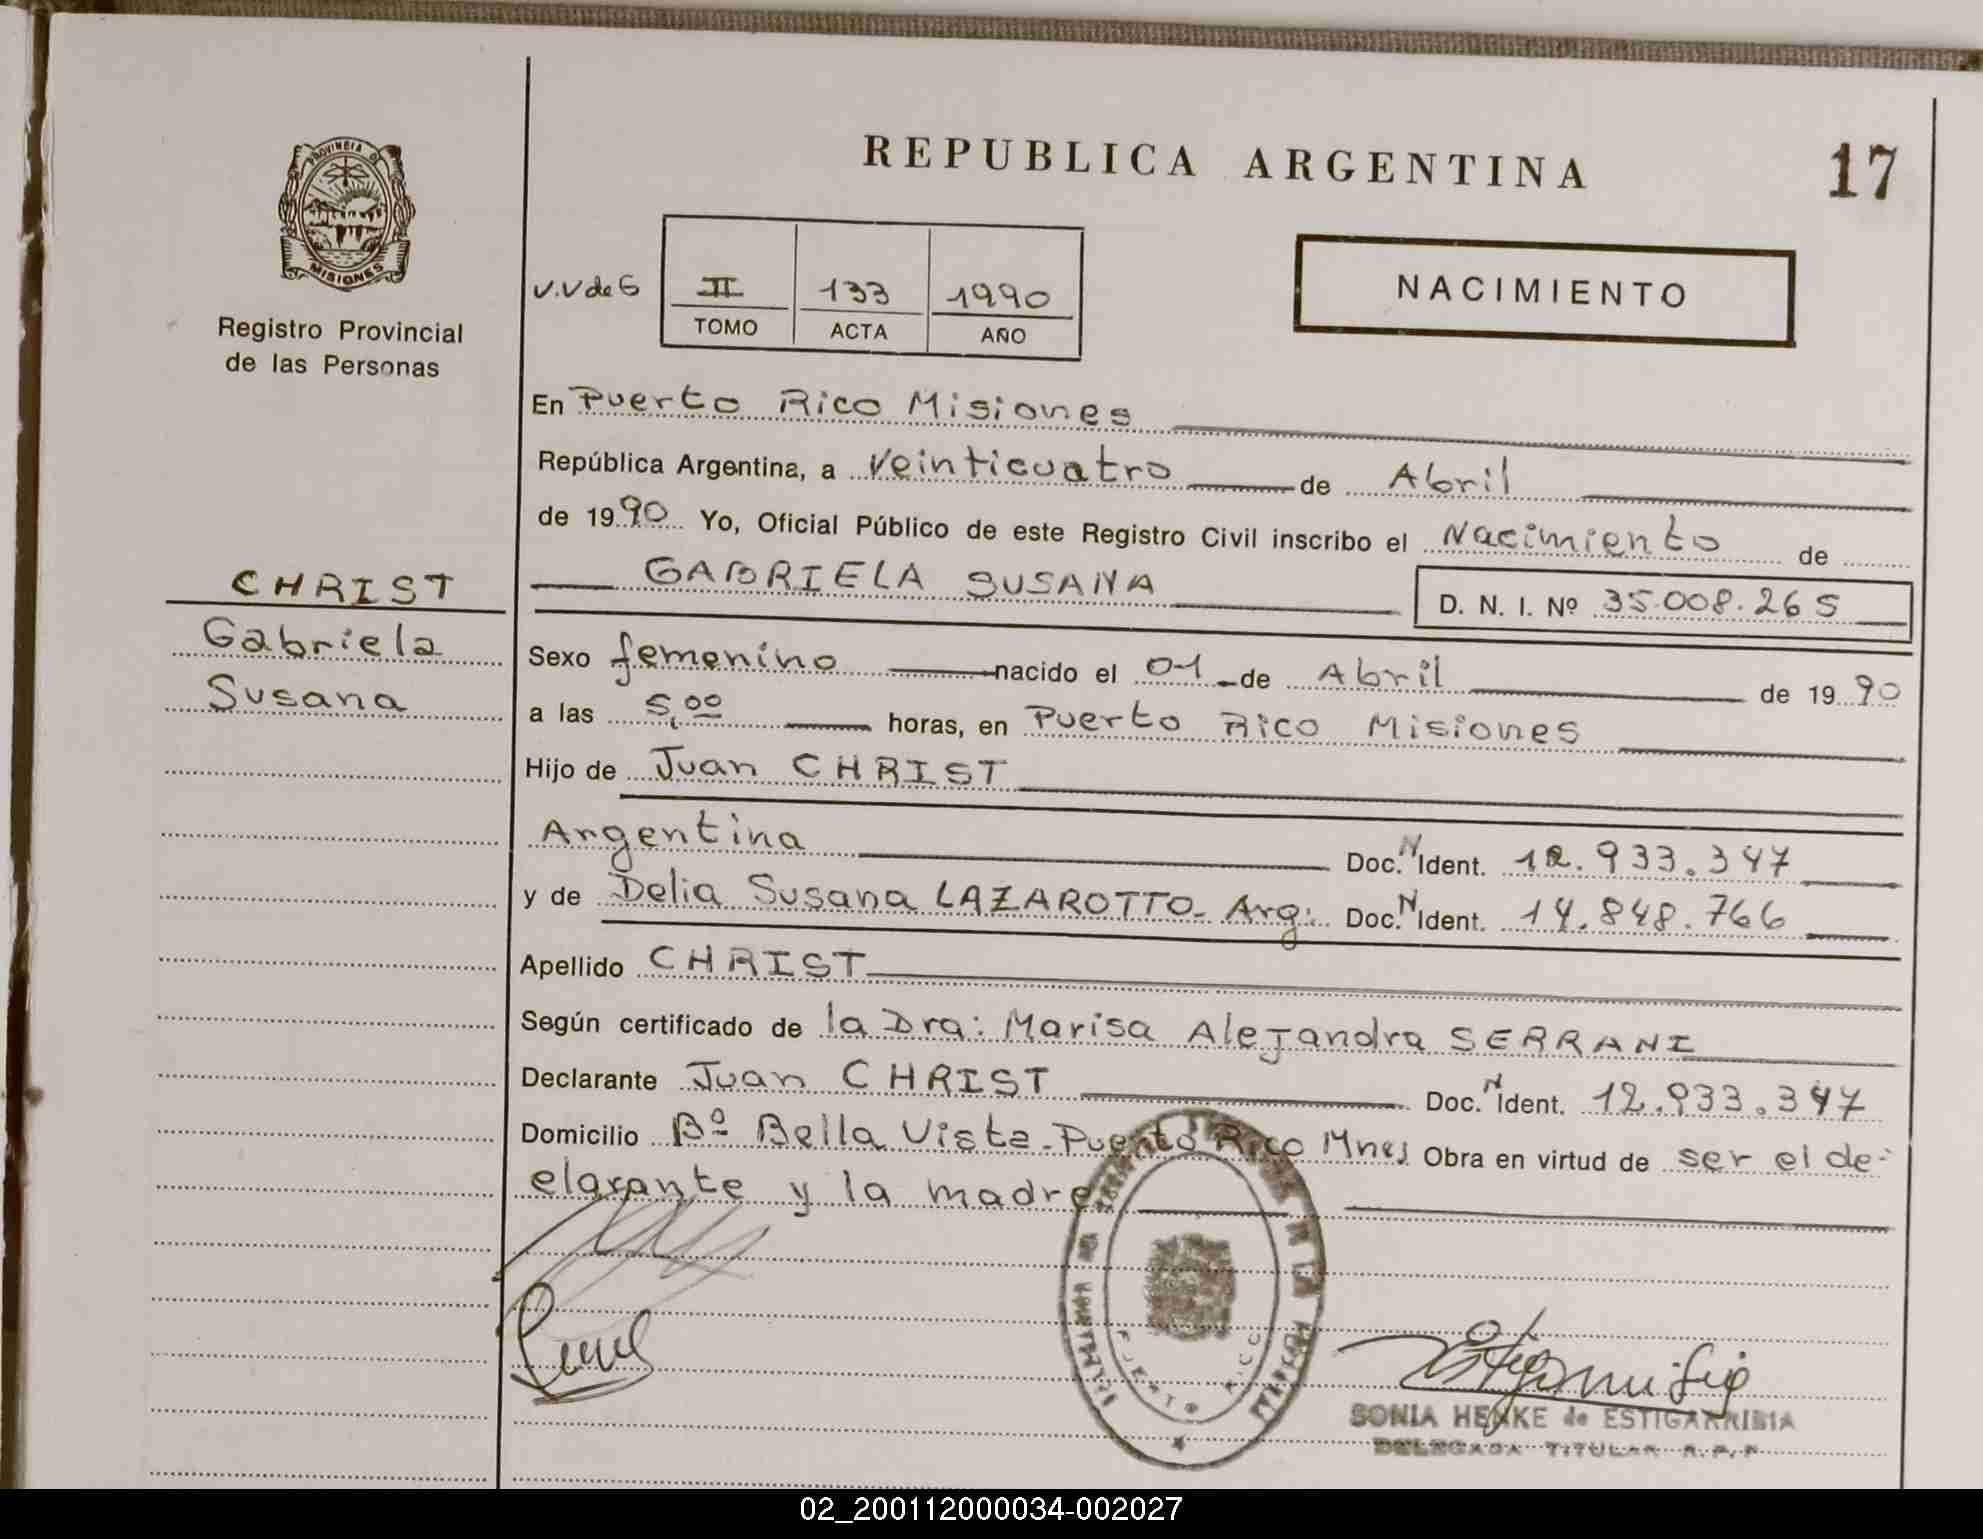 REPUBLICA ARGENTINA
17
PROVINCIA DE
MISIONES
Registro Provincial
de las Personas
V.V de G
II
133
1990
TOMO
ACTA
AÑO
NACIMIENTO
En Puerto Rico Misiones
República Argentina, a Veinticuatro de Abril
de 1990 Yo, Oficial Público de este Registro Civil inscribo el Nacimiento de
GABRIELA SUSANA D. N. I. Nº 35.008.265
CHRIST
Gabriela
Susana
Sexo femenino nacido el 01 de Abril de 1990
a las 5,00 horas, en Puerto Rico Misiones
Hijo de Juan CHRIST
Argentina Doc. N Ident. 12.933.347
y de Delia Susana LAZAROTTO- Arg: Doc. N Ident. 14.848.766
Apellido CHRIST
Según certificado de la Dra: Marisa Alejandra SERRANI
Declarante Juan CHRIST Doc. N Ident. 12.933.347
Domicilio Bº Bella Vista-Puerto Rico Mnes Obra en virtud de ser el de-
clarante y la madre
PUERTO RICO
SONIA HENKE de ESTIGARRIBIA
DELEGADA TITULAR R.P.P
02_200112000034-002027